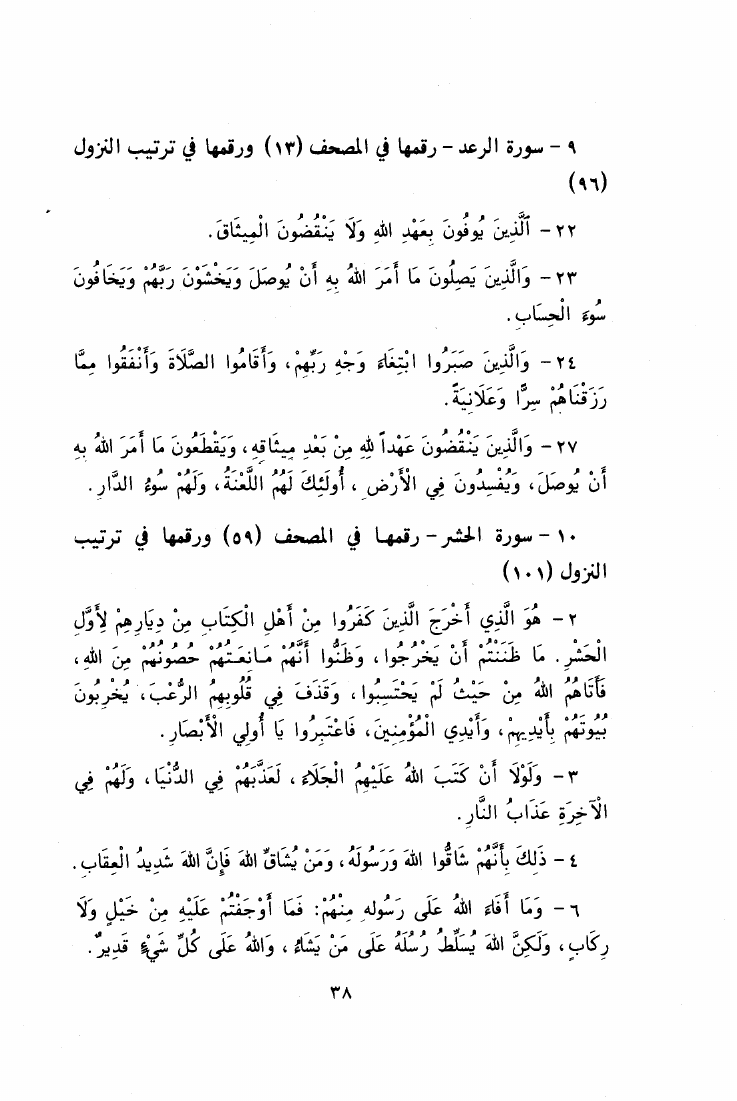 ٩ - سورة الرعد - رقمها في المصحف (١٣) ورقمها في ترتيب النزول
(٩٦)
٢٢ - ٱلَّذِينَ يُوفُونَ بِعَهْدِ اللهِ وَلَا يَنْقُضُونَ الْمِيثَاقَ.
٢٣ - وَالَّذِينَ يَصِلُونَ مَا أَمَرَ اللهُ بِهِ أَنْ يُوصَلَ وَيَخْشَوْنَ رَبَّهُمْ وَيَخَافُونَ
سُوءَ الْحِسَابِ.
٢٤ - وَالَّذِينَ صَبَرُوا ابْتِغَاءَ وَجْهِ رَبِّهِمْ، وَأَقَامُوا الصَّلَاةَ وَأَنْفَقُوا مِمَّا
رَزَقْنَاهُمْ سِرًّا وَعَلَانِيَةً.
٢٧ - وَالَّذِينَ يَنْقُضُونَ عَهْداً لِلهِ مِنْ بَعْدِ مِيثَاقِهِ، وَيَقْطَعُونَ مَا أَمَرَ اللهُ بِهِ
أَنْ يُوصَلَ، وَيُفْسِدُونَ فِي الْأَرْضِ، أُولَئِكَ لَهُمُ اللَّعْنَةُ، وَلَهُمْ سُوءُ الدَّارِ.
١٠ - سورة الحشر - رقمها في المصحف (٥٩) ورقمها في ترتيب
النزول (١٠١)
٢ - هُوَ الَّذِي أَخْرَجَ الَّذِينَ كَفَرُوا مِنْ أَهْلِ الْكِتَابِ مِنْ دِيَارِهِمْ لِأَوَّلِ
الْحَشْرِ. مَا ظَنَنْتُمْ أَنْ يَخْرُجُوا، وَظَنُّوا أَنَّهُمْ مَانِعَتُهُمْ حُصُونُهُمْ مِنَ اللهِ،
فَأَتَاهُمُ اللهُ مِنْ حَيْثُ لَمْ يَحْتَسِبُوا، وَقَذَفَ فِي قُلُوبِهِمُ الرُّعْبَ، يُخْرِبُونَ
بُيُوتَهُمْ بِأَيْدِيهِمْ، وَأَيْدِي الْمُؤْمِنِينَ، فَاعْتَبِرُوا يَا أُولِي الْأَبْصَارِ.
٣ - وَلَوْلَا أَنْ كَتَبَ اللهُ عَلَيْهِمُ الْجَلَاءَ، لَعَذَّبَهُمْ فِي الدُّنْيَا، وَلَهُمْ فِي
الْآخِرَةِ عَذَابُ النَّارِ.
٤ - ذَلِكَ بِأَنَّهُمْ شَاقُّوا اللهَ وَرَسُولَهُ، وَمَنْ يُشَاقِّ اللهَ فَإِنَّ اللهَ شَدِيدُ الْعِقَابِ.
٦ - وَمَا أَفَاءَ اللهُ عَلَى رَسُولِهِ مِنْهُمْ: فَمَا أَوْجَفْتُمْ عَلَيْهِ مِنْ خَيْلٍ وَلَا
رِكَابٍ، وَلَكِنَّ اللهَ يُسَلِّطُ رُسُلَهُ عَلَى مَنْ يَشَاءُ، وَاللهُ عَلَى كُلِّ شَيْءٍ قَدِيرٌ.
٣٨